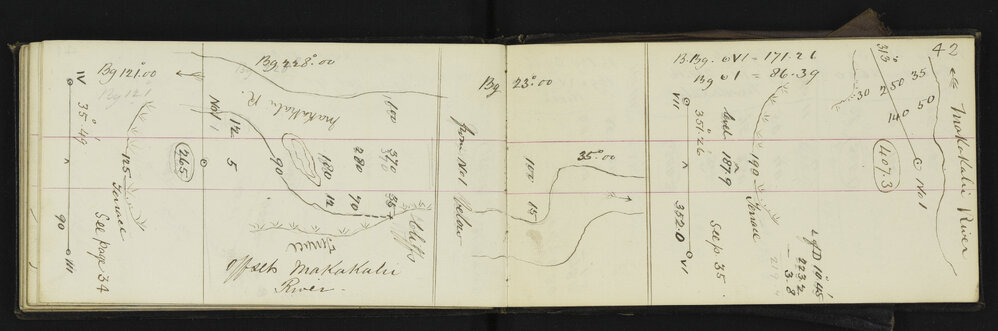 Bg 121°.00
Bg 121
IV 35°.49 90 III
125 Terrace
See page 34
265
Bg 228°.00
Makakahi R.
No 1
12 5
90
100
370
180 280
12 70 56
Cliffs
Terrace
offsets Makakahi
River.
Bg 23°.00
from No 1 below
100 15
35°.00
B.Bg. ⊙VI = 171.26
Bg ⊙ I = 86.39
VII 351°.26 352.0 VI
1879
190 Terrace
See p 35.
10°.45
223.2
3.8
42
313°
30 250 35
140 50
407.3
No 1
Makakahi River